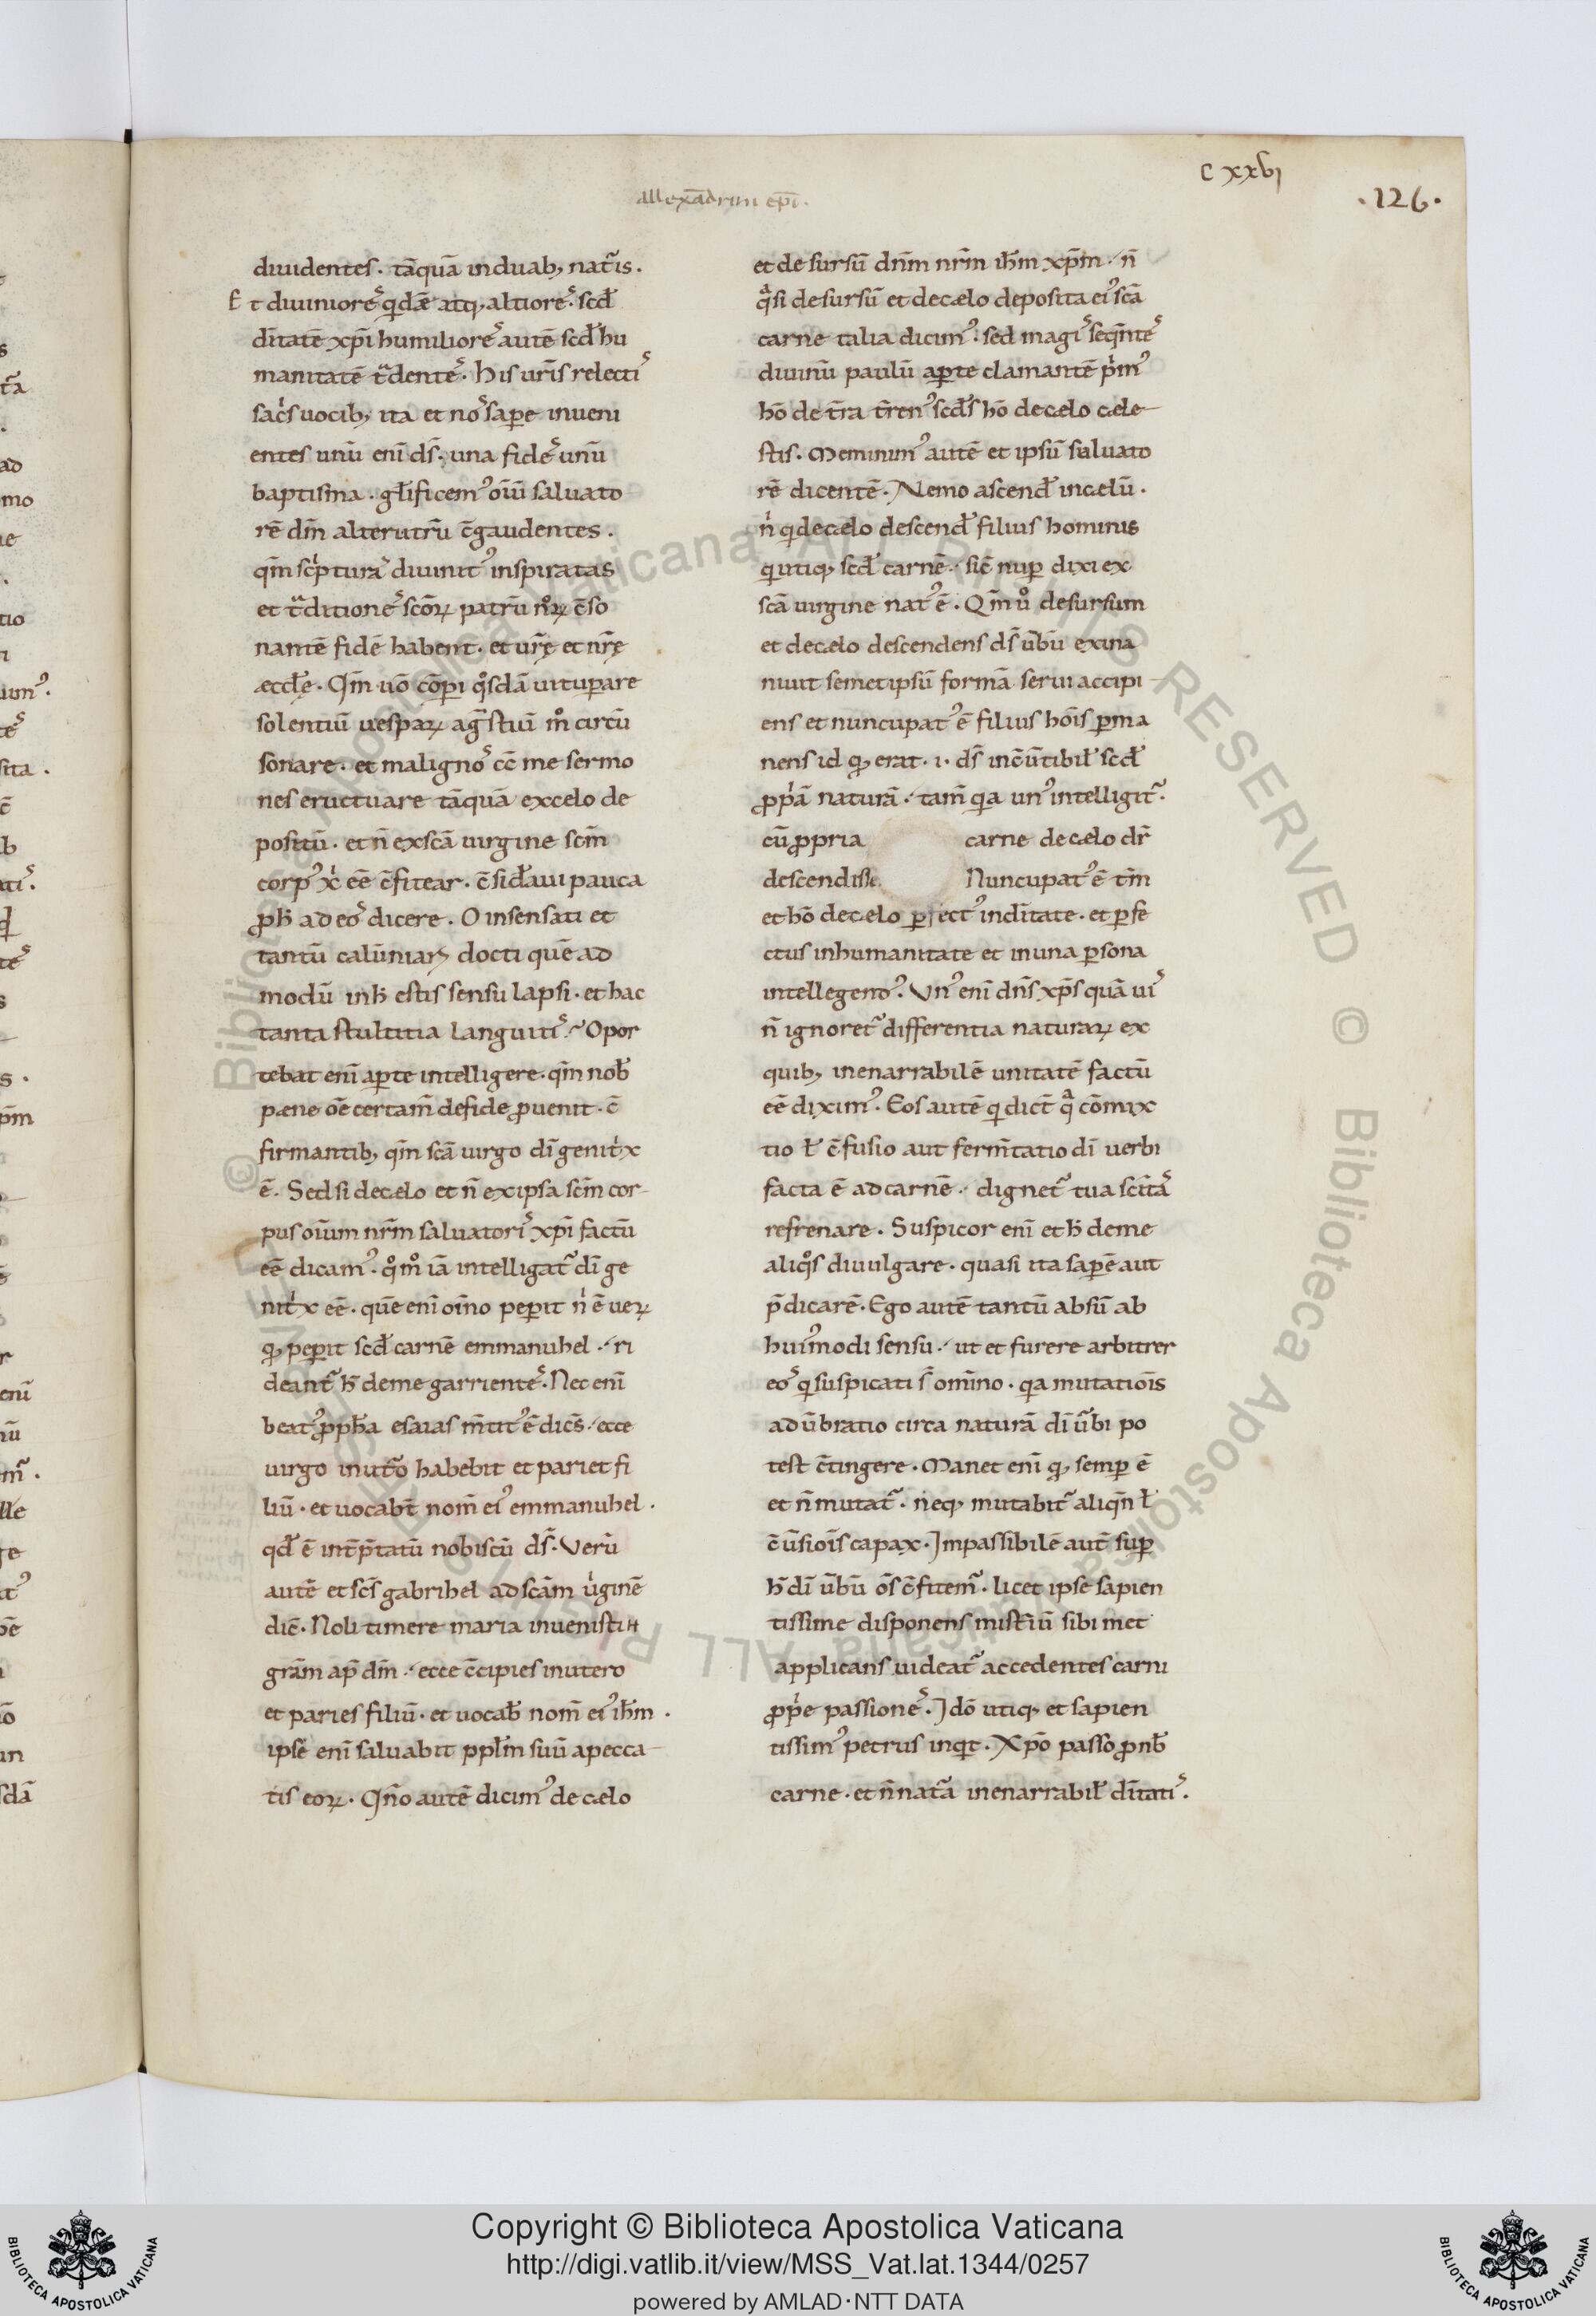 c xxvi
.126.
allexãdrini epĩ.
diuidentes. tãquã in duab; nat᷑is.
Et diuiniores q̇dã atq; altiores. scd̃
d̃itatẽ xp̃i humiliores autẽ scd̃ hu
manitatẽ t᷑dentes. His ur̃is relectis
sac̃s uocib; ita et nos sapere inueni
entes unũ eni ds̃. una fides unũ
baptisma. gl̃ificemꝰ oĩũ saluato
rẽ dm̃ alterutrũ c̃gaudentes.
qm̃ scripturas diuinitꝰ inspiratas
et t᷑ditiones scõꝝ patrũ nr̃oꝝ c̃so
nantẽ fidẽ habent. et ur̃ę et nr̃ę
æccl̃ę. Qm̃ uõ cõperi qosdã uituꝑare
solentiũ uespaꝝ agrestiũ mo circũ
sonare. et malignos cc̃ me sermo
nes eructuare tãquã ex celo de
positũ. et ñ ex scã uirgine scm̃
corpꝰ xi eẽ c̃fitear. c̃sid̃aui pauca
ꝓ h̃ ad eos dicere. O insensati et
tantũ calũniaꝝ docti quẽ ad
modũ in h̃ estis sensu lapsi. et hac
tanta stultitia languitis. Opor
tebat eni aꝑte intelligere. qm̃ nob̃
pæne oẽ certam̃ de fide ꝓuenit. c̃
firmantib; qm̃ scã uirgo di genitx
ẽ. Sed si de cælo et ñ ex ipsa scm̃ cor-
pus oium nrm̃ saluatoris xp̃i factũ
eẽ dicamꝰ. qomo iã intelligat᷑ di ge
nitx eẽ. quẽ eni oĩno peperit n̓ ẽ ueꝝ
qd; peꝑit scd̃ carnẽ emmanuhel. ri
deant᷑ h̃ de me garrientes. Nec eni
beatꝰ ꝓph̃a esaias m̃titꝰ ẽ dicẽs. ecce
uirgo in utõ habebit et pariet fi
liũ. et uocabt̃ nom̃ eiꝰ emmanuhel.
qd̃ ẽ int̃p̃tatũ nobiscũ ds̃. Verũ
autẽ et scs̃ gabrihel ad scãm u̓ginẽ
dic̃. Noli timere maria inuenisti
gram̃ ap̃ dm̃. ecce c̃cipies in utero
et paries filiũ. et uocab̃ nom̃ eiꝰ ih̃m.
ipse eni saluabit ppl̃m suũ a pecca-
tis eoꝝ. Qñõ autẽ dicimꝰ de cælo
et de sursũ dñm nr̃m ih̃m xp̃m. ñ
qasi de sursũ et de cælo deposita eiꝰ scã
carne talia dicimꝰ. sed magis seqñtes
diuinũ paulũ aꝑte clamantẽ p̓mꝰ
hõ de t̃ra t̃renꝰ scds̃ hõ de cælo cæle-
stis. Meminimꝰ autẽ et ipsũ saluato
rẽ dicentẽ. Nemo ascend̃ in cælũ.
n̓ qi de cælo descend̃ filius hominis
qi utiq; scd̃ carnẽ. sic̃ nuꝑ dixi ex
scã uirgine natꝰ ẽ. Qm̃ uo de sursum
et de cælo descendens ds̃ ub̃ũ exina
niuit semetipsũ formã serui accipi-
ens et nuncupatꝰ ẽ filius hõis ꝑma
nens id qd; erat. i. ds̃ inc̃ũtibil̃ scd̃
ꝓp̓ã naturã. tam̃ qia unꝰ intelligit᷑.
cũ ꝓpria carne de cælo dr̃
descendisse. Nuncupatꝰ ẽ tm̃
et hõ de cælo ꝑfectꝰ in d̃itate. et ꝑfe
ctus in humanitate et in una ꝑsona
intellegendꝰ. Vnꝰ eni dñs xp̃s quã uis
ñ ignoret᷑ differentia naturaꝝ ex
quib; inenarrabilẽ unitatẽ factũ
eẽ diximꝰ. Eos autẽ qi dict̃ qa cõmix
tio l̃ c̃fusio aut ferm̃tatio di uerbi
facta ẽ ad carnẽ. dignet᷑ tua scĩtas
refrenare. Suspicor eni et h̃ de me
aliqos diuulgare. quasi ita saꝑẽ aut
p̃dicarẽ. Ego autẽ tantũ absũ ab
huiꝰmodi sensu. ut et furere arbitrer
eos qi suspicati s̃ om̃ino. qia mutatiõis
adũbratio circa naturã di ũbi po
test c̃tingere. Manet eni qd; semꝑ ẽ
et ñ mutat᷑. neq; mutabit᷑ aliqñ l̃
c̃ũsiõis capax. Impassibilẽ aut̃ suꝑ
h̃ di ũbũ õs c̃fitem᷑. licet ipse sapien
tissime disponens mist̃iũ sibi met
applicans uideat᷑ accedentes carni
ꝓp̓e passiones. Idõ utiq; et sapien
tissimꝰ petrus inqit. Xp̃o passo ꝓ nb̃
carne. et ñ natã inenarrabil̃ d̃itatis.
Copyright © Biblioteca Apostolica Vaticana
http://digi.vatlib.it/view/MSS_Vat.lat.1344/0257
powered by AMLAD·NTT DATA